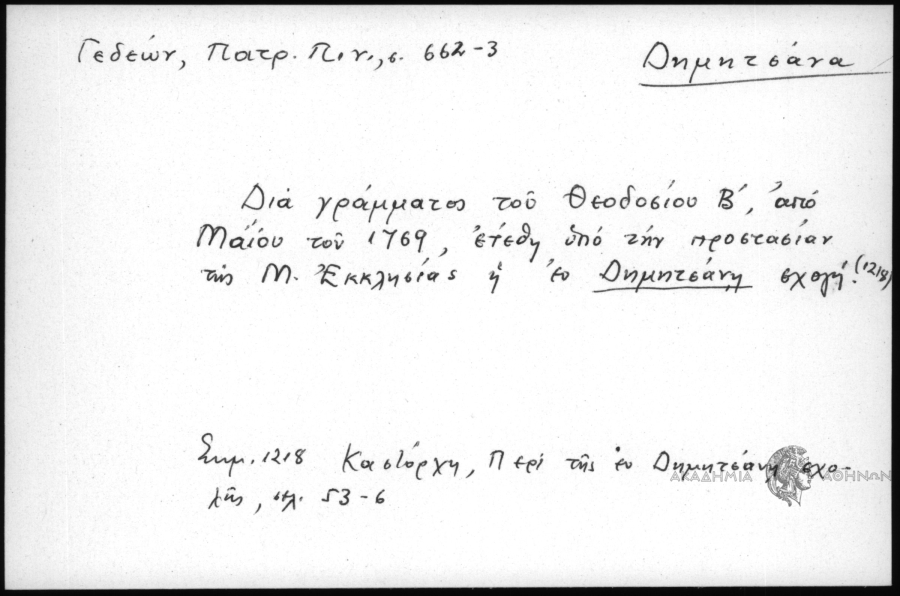 Γεδεών, Πατρ. Πιν., σ. 662-3
Δημητσάνα
Διά γράμματος τοῦ Θεοδοσίου Β', ἀπό
Μαΐου τοῦ 1769, ἐτέθη ὑπό τήν προστασίαν
τῆς Μ. Ἐκκλησίας ἡ ἐν Δημητσάνῃ σχολή. (1218)
Σημ. 1218 Καστόρχη, Περί τῆς ἐν Δημητσάνῃ σχο-
λῆς, σελ. 53-6
ΑΚΑΔΗΜΙΑ ΑΘΗΝΩΝ